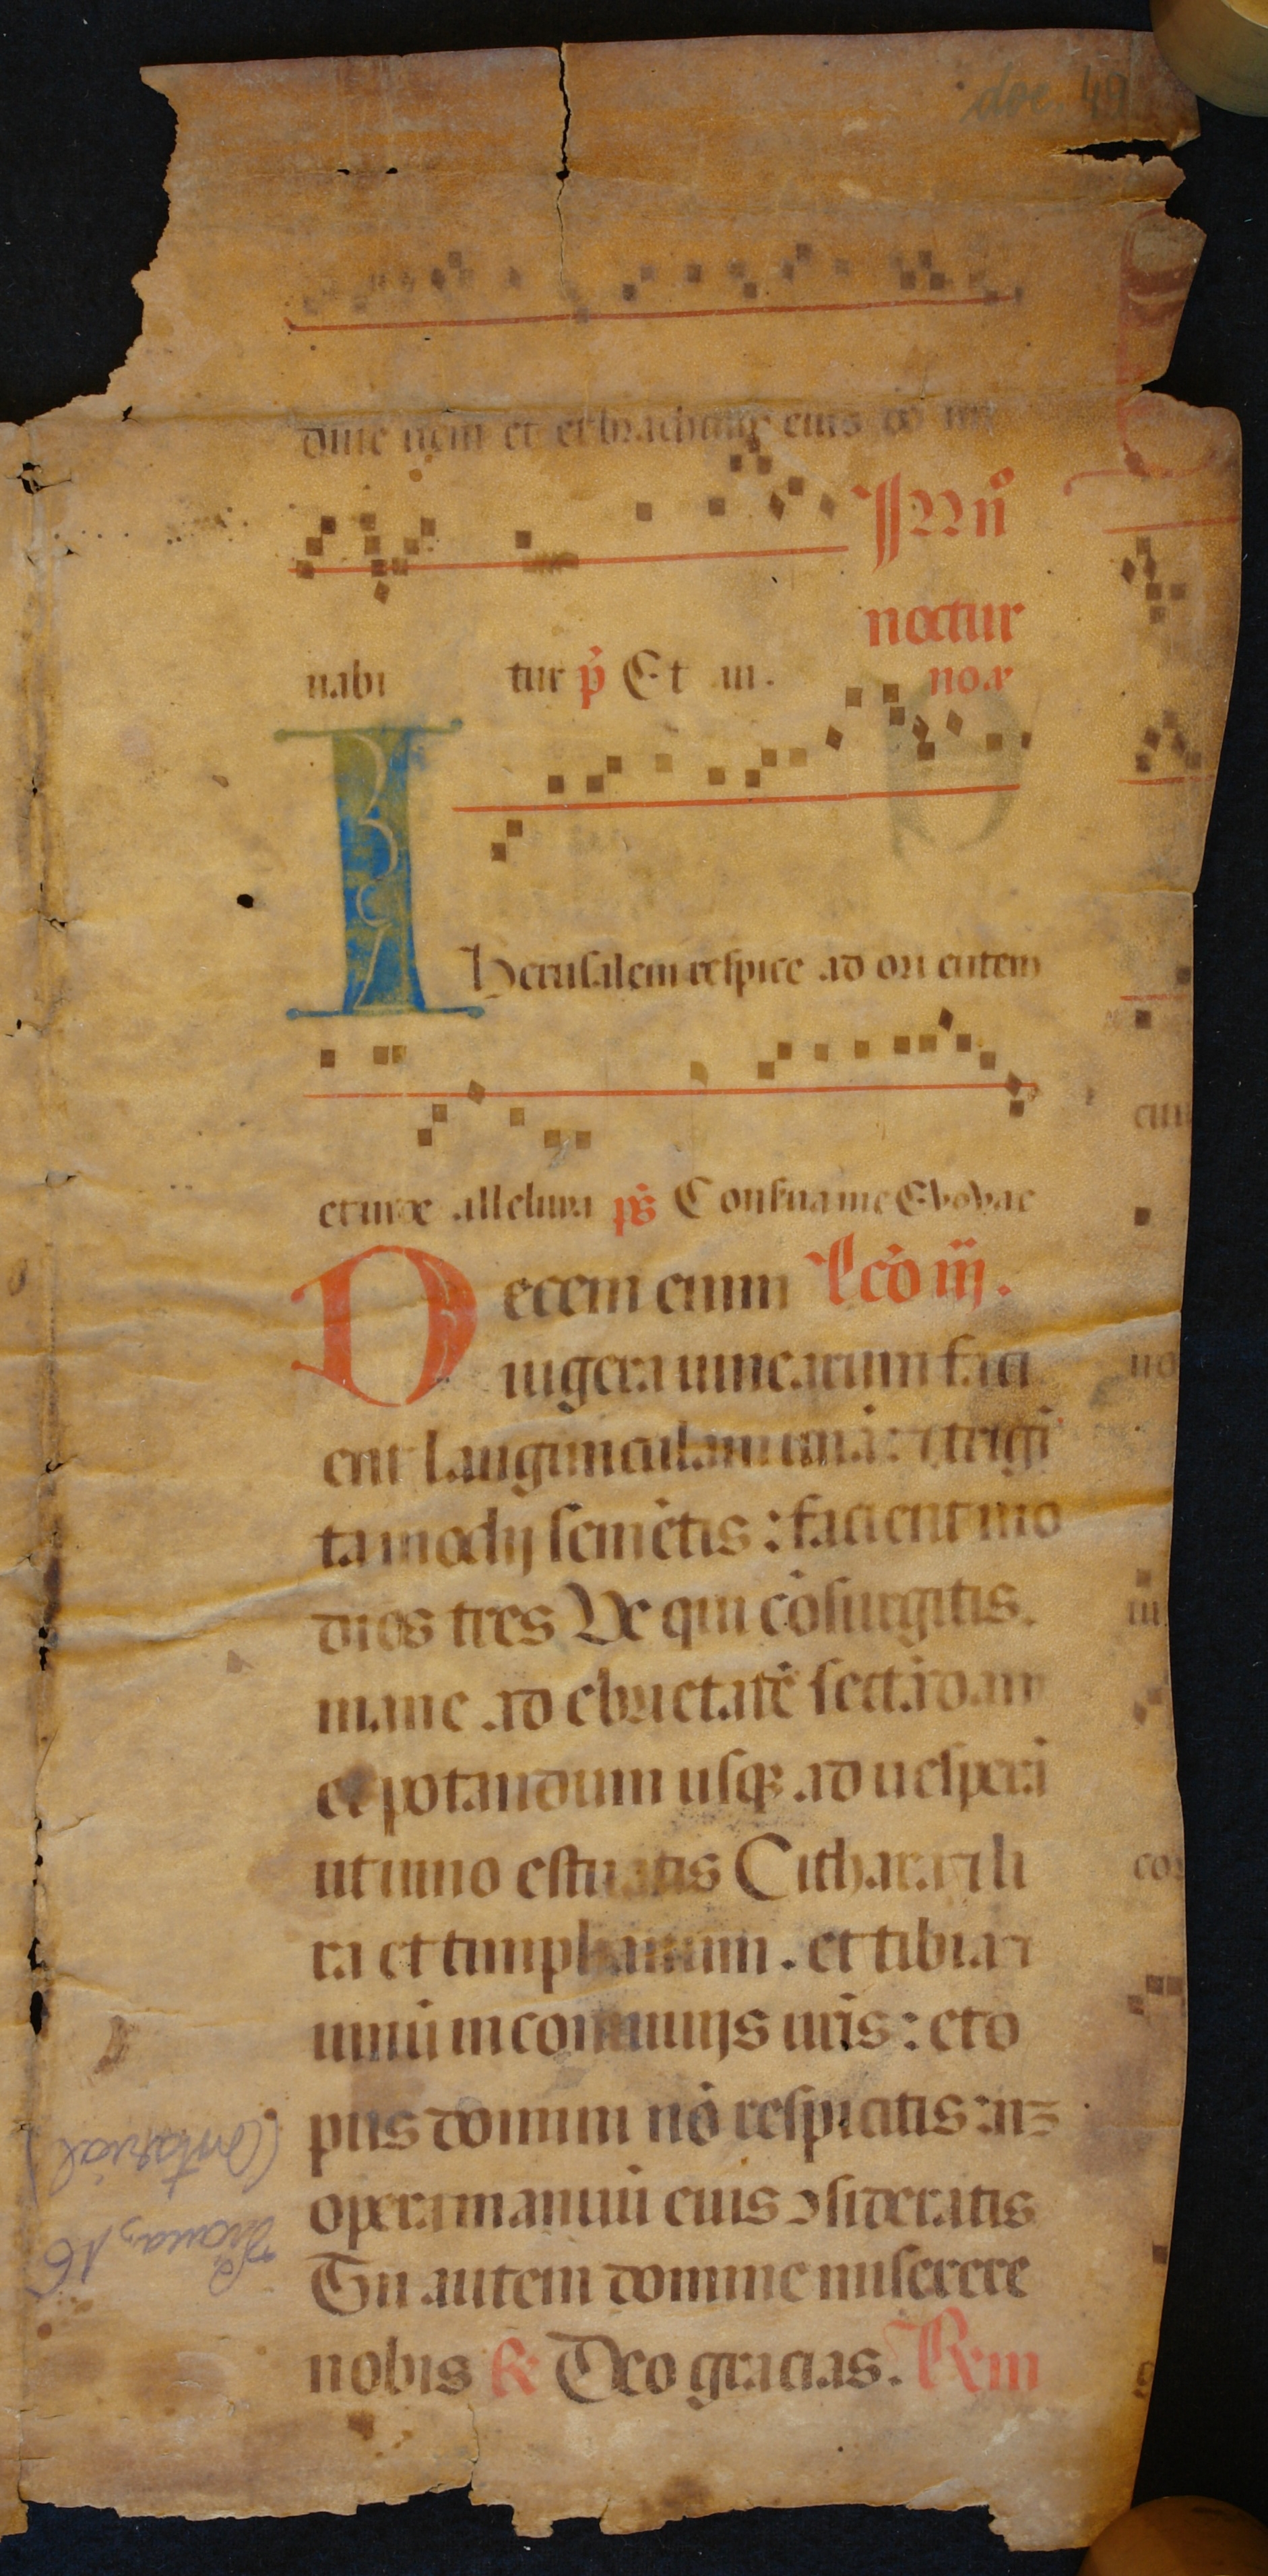 doc. 49
dine nem et et brachium eius co nfir
In iij
noctur
nabi tur p̄ Et in. no ꝛ
Iherusalem respice ad ori entem
et uide alleluya ps̄ Conserua me Euouae
Decem enim Lcō iij.
iugera uinearum faci
ent lagunculam unā: ⁊ trigī
ta modij semētis: facient mo
dios tres Ve qui cōsurgitis.
mane ad ebrietatē sectādam
et potandum usqꝫ ad uesperā
ut uino estuatis Cithara ⁊ li
ra et timphanum. et tibia ⁊
uinū in conuiuijs uris: et o
pus domini nō respicitis: nꝫ
opera manuū eius ꝯsideratis
Tu autem domine miserere
nobis ℟ Deo gracias. Rm